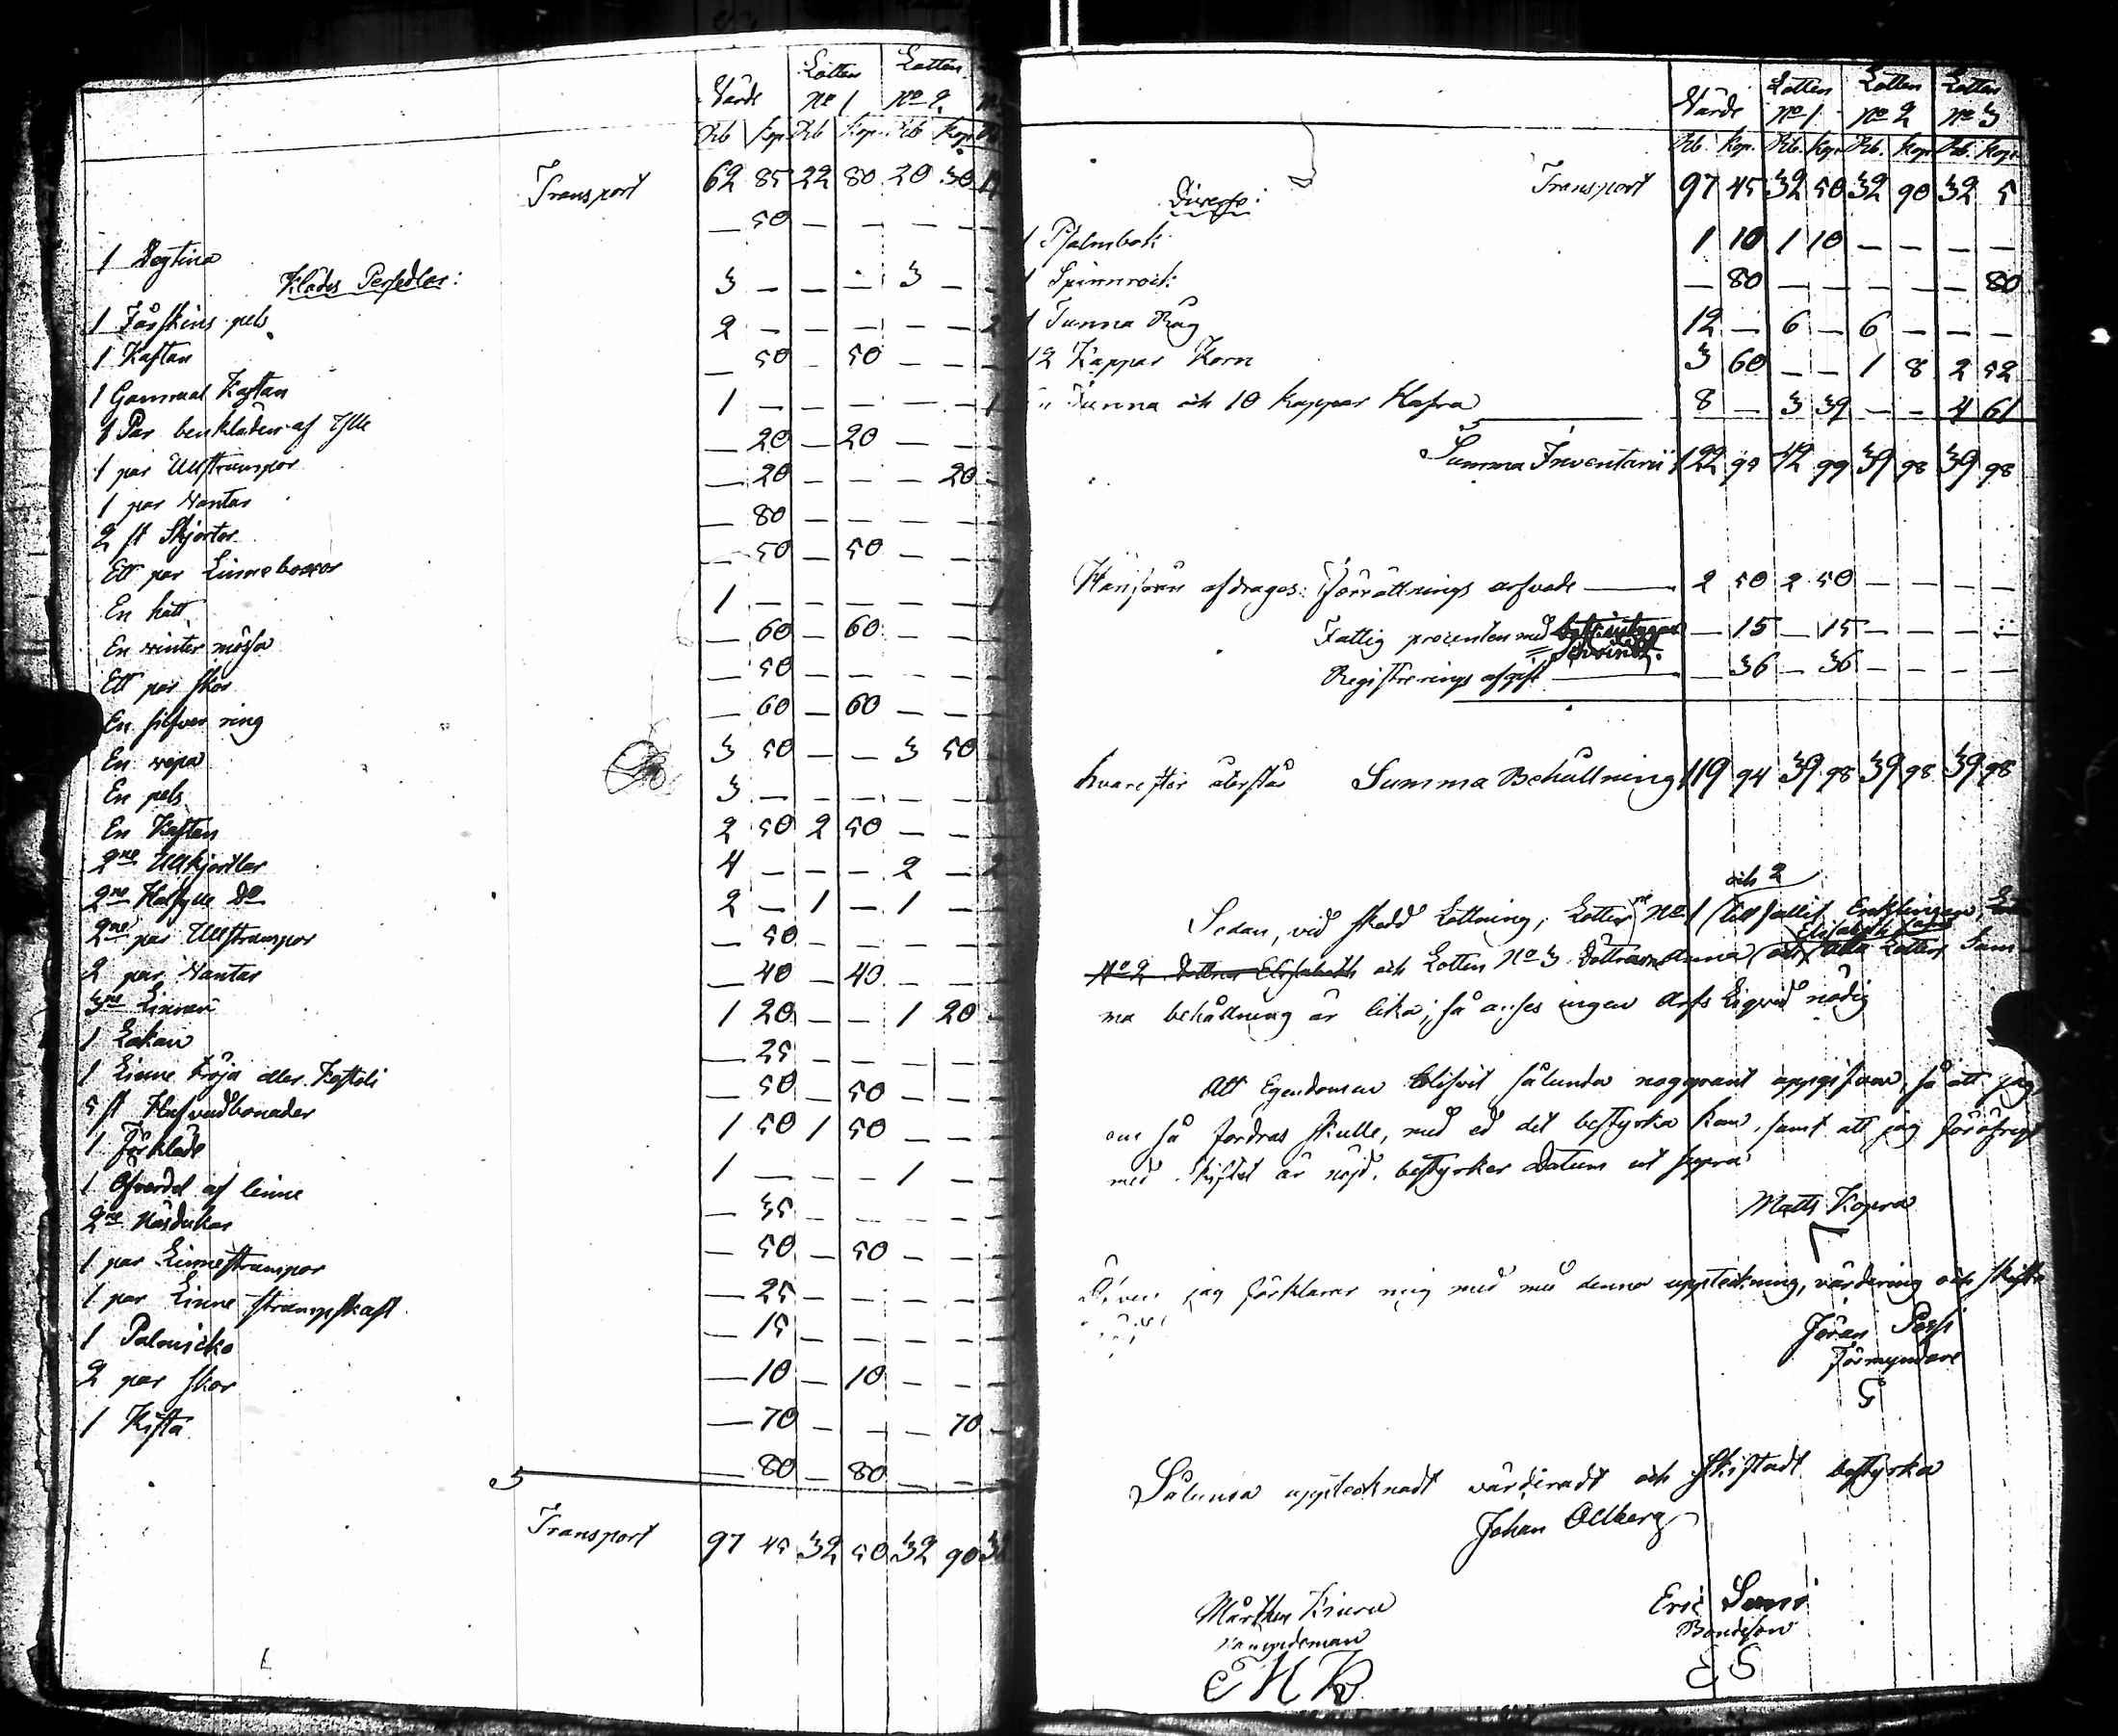 Värde Lotten Lotten
No 1 No 2
Rb Kop. Rb Kop. Rb Kop.
Transport 62 85 22 80 20 30
1 Degtina — 50 — — — —
Kläde Persedlar:
1 Fårskins pels 3 — — — 3 —
1 Kaftan 2 — — — — — 2
1 Gammal Kaftan — 50 — 50 — —
1 Par benkläder af Ylle 1 — — — — — 1
1 par Ullstrumpor — 20 — 20 — —
1 par Vantar — 20 — — — 20
2 st Skjortor — 80 — — — —
Ett par Linneboxor — 50 — 50 — —
En hatt 1 — — — — — 1
En vintermössa — 60 — 60 — —
Ett par skor — 50 — — — —
En silfver ring — 60 — 60 — —
En wepa 3 50 — — 3 50
En pels 3 — — — — —
En Kaftan 2 50 2 50 — —
2ne Ullkjortlar 4 — — — 2 — 2
2ne Halfylle Do 2 — 1 — 1 —
2ne par Ullstrumpor — 50 — — — —
2 par Vantar — 40 — 40 — —
3ne Linnen 1 20 — — 1 20
1 Lakan — 25 — — — —
1 Linne tröja eller Kostoli — 50 — 50 — —
5 st Hufvudbonader 1 50 1 50 — —
1 Förkläde 1 — — — 1 —
1 Öfverdel af linne — 35 — — — —
2ne Näsdukar — 50 — 50 — —
1 par Linnestrumpor — 25 — — — —
1 par Linne strumpskaft — 15 — — — —
1 — 10 — 10 — —
2 par skor — 70 — — — 70
1 Kista — 80 — 80 — —
Transport 97 45 32 50 32 90
Värde Lotten Lotten Lotten
No 1 No 2 No 3
Rb. Kop. Rb. Kop. Rb. Kop. Rb. Kop.
Transport 97 45 32 50 32 90 32 5
Diverse:
1 Psalmbok 1 10 1 10 — — — —
1 Spinnrock — 80 — — — — — 80
1 Tunna Råg 12 — 6 — 6 — — —
12 Kappar Korn 3 60 — — 1 8 2 52
Tunna och 10 kappar Hafra 8 — 3 39 — — 4 61
Summa Inventarii 122 95 42 99 39 98 39 98
Härifrån afdrages: Förrättnings arfvode 2 50 2 50 — — — —
Fattig procenten med — 15 — 15 — — — —
Registrerings afgift — 36 — 36 — — — —
hvarefter återstår Summa Behållning 119 94 39 98 39 98 39 98
och 2
Sedan, vid skedd Lottning, Lotterne No 1 tillfallit Enklingen,
Elisabeth samt
No 2 Dottren Elisabeth och Lotten No 3 Dottren Anna och alla Lotters Sum
ma behållning är lika; så anses ingen Arfs Liqvid nödig
Att Egendomen blifvit sålunda noggrant uppgifven, så att jag,
om så fordras skulle, med ed det bestyrka kan, samt att jag föröfrigt
med skiftet är nöjd, bestyrker Datum ut supra
Matts Kopra
Även jag förklarar mig med denna uppteckning, värdering och skifte
nöjd
Jöran Possi
Förmyndare
Sålunda upptecknadt värderadt och skiftadt bestyrka
Johan Ollberg
Mårthen Kiuru
Nämndeman
MK
Eric Sorri
Bondeson
ES